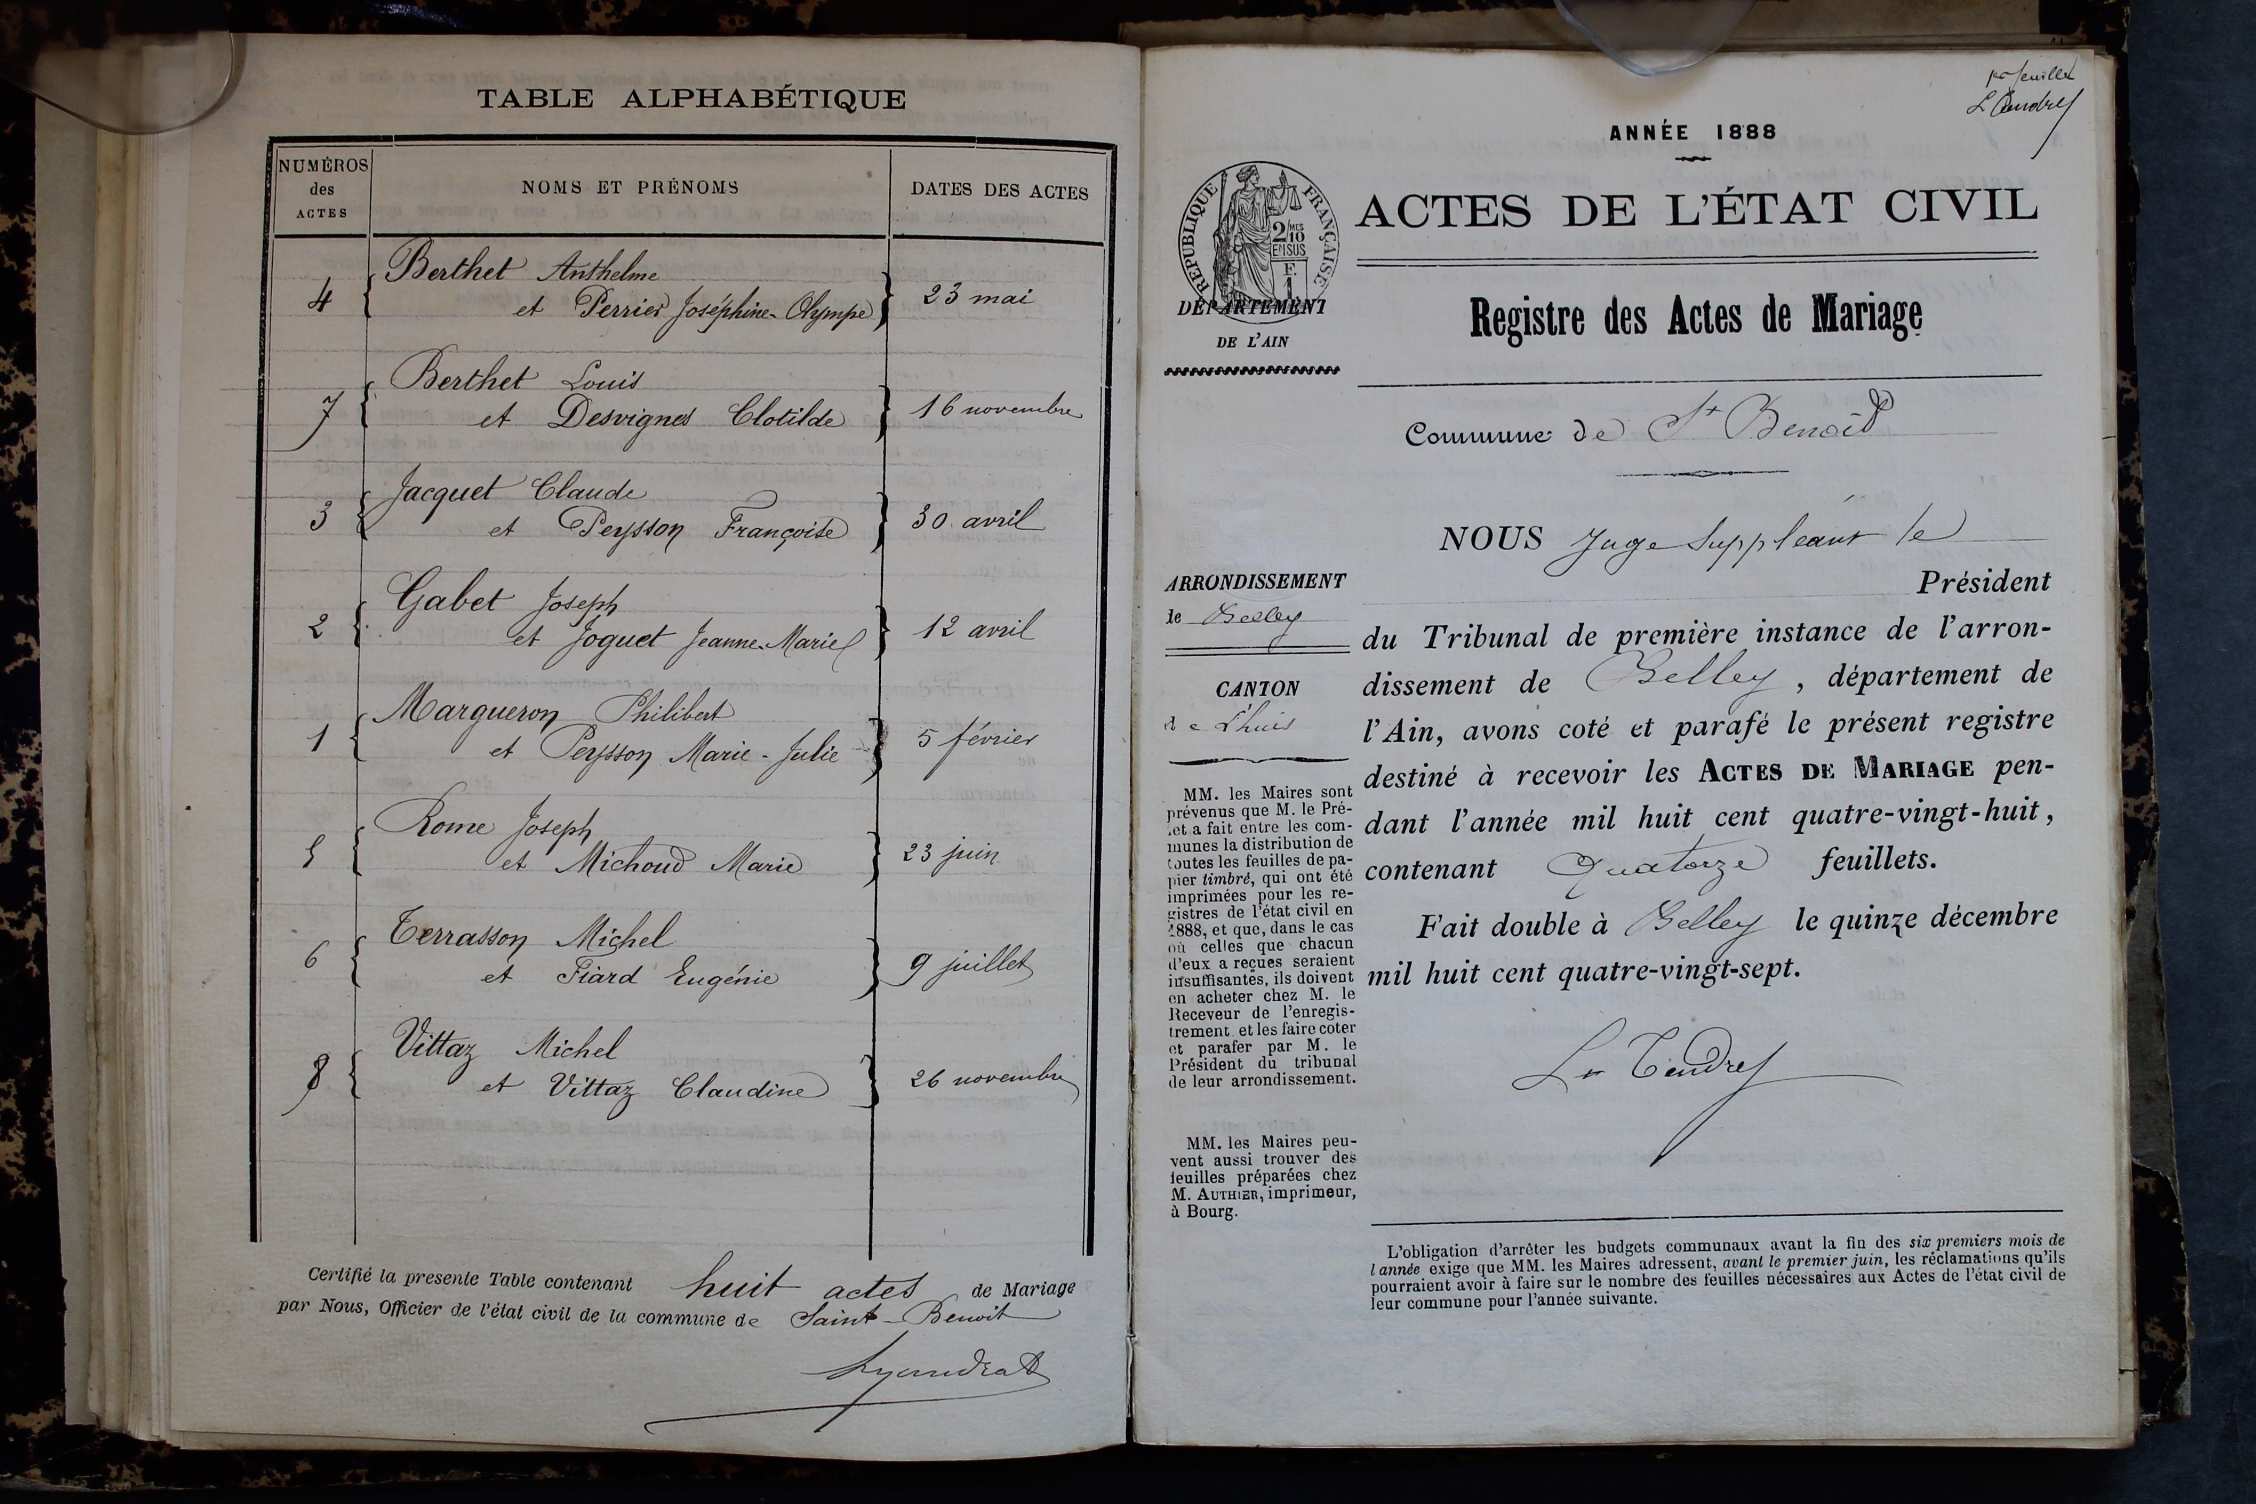 TABLE ALPHABÉTIQUE
NUMÉROS
des
ACTES
NOMS ET PRÉNOMS
DATES DES ACTES
Berthet Anthelme
4 { et Perrier Joséphine-Olympe } 23 mai
Berthet Louis
7 { et Desvignes Clotilde } 16 novembre
Jacquet Claude
3 { et Peysson Françoise } 30 avril
Gabet Joseph
2 { et Joguet Jeanne-Marie } 12 avril
Margueron Philibert
1 { et Peysson Marie-Julie } 5 février
Rome Joseph
5 { et Michoud Marie } 23 juin
Terrasson Michel
6 { et Fiard Eugénie } 9 juillet
Vittaz Michel
8 { et Vittaz Claudine } 26 novembre
Certifié la presente Table contenant huit actes de Mariage
par Nous, Officier de l'état civil de la commune de Saint-Benoit
1er feuillet
ANNÉE 1888
RÉPUBLIQUE FRANÇAISE
2/10
MES
EN SUS
F.
1
ACTES DE L'ÉTAT CIVIL
DÉPARTEMENT
DE L'AIN
Registre des Actes de Mariage
Commune de St Benoît
ARRONDISSEMENT
de Belley
CANTON
de Lhuis
MM. les Maires sont
prévenus que M. le Pré-
fet a fait entre les com-
munes la distribution de
toutes les feuilles de pa-
pier timbré, qui ont été
imprimées pour les re-
gistres de l'état civil en
1888, et que, dans le cas
où celles que chacun
d'eux a reçues seraient
insuffisantes, ils doivent
en acheter chez M. le
Receveur de l'enregis-
trement et les faire coter
et parafer par M. le
Président du tribunal
de leur arrondissement.
MM. les Maires peu-
vent aussi trouver des
feuilles préparées chez
M. AUTHIER, imprimeur,
à Bourg.
NOUS Juge Suppléant le
Président
du Tribunal de première instance de l'arron-
dissement de Belley, département de
l'Ain, avons coté et parafé le présent registre
destiné à recevoir les ACTES DE MARIAGE pen-
dant l'année mil huit cent quatre-vingt-huit,
contenant Quatorze feuillets.
Fait double à Belley le quinze décembre
mil huit cent quatre-vingt-sept.
L'obligation d'arrêter les budgets communaux avant la fin des six premiers mois de
l'année exige que MM. les Maires adressent, avant le premier juin, les réclamations qu'ils
pourraient avoir à faire sur le nombre des feuilles nécessaires aux Actes de l'état civil de
leur commune pour l'année suivante.